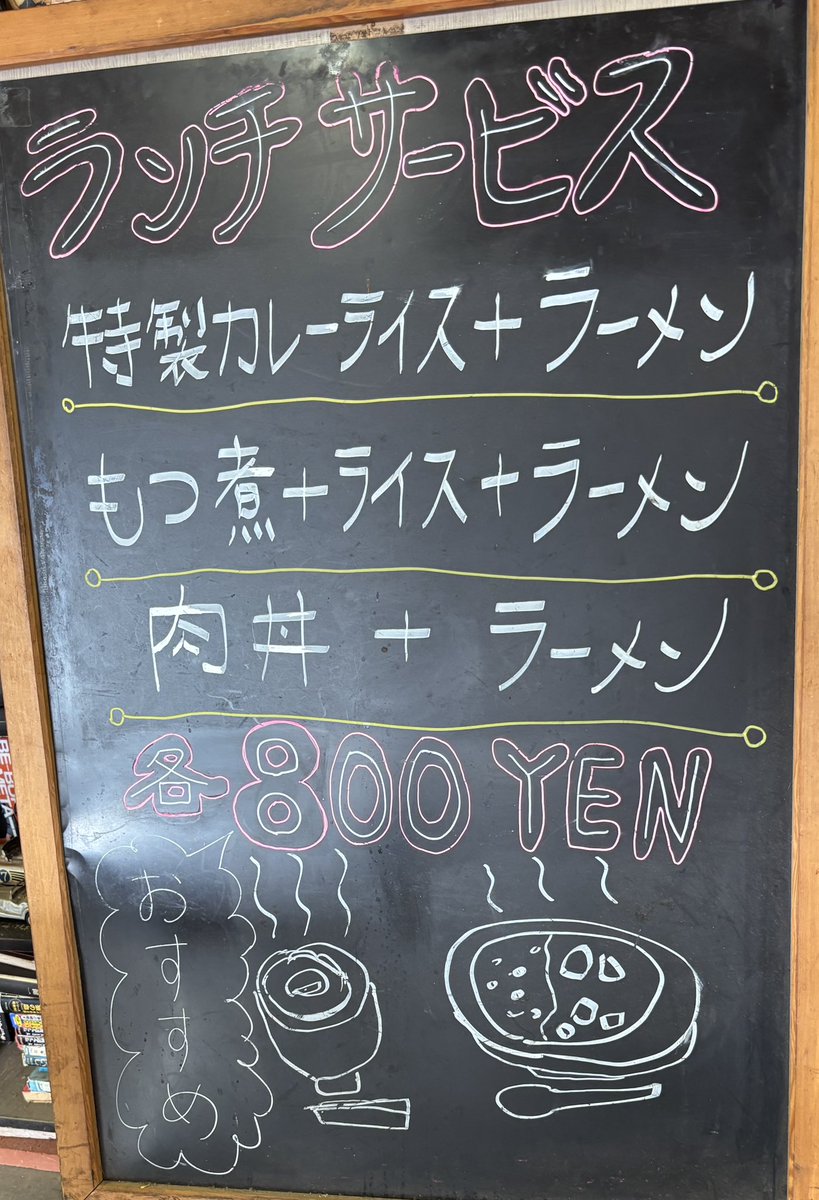 ランチサービス
特製カレーライス+ラーメン
もつ煮+ライス+ラーメン
肉丼+ラーメン
各800YEN
おすすめ